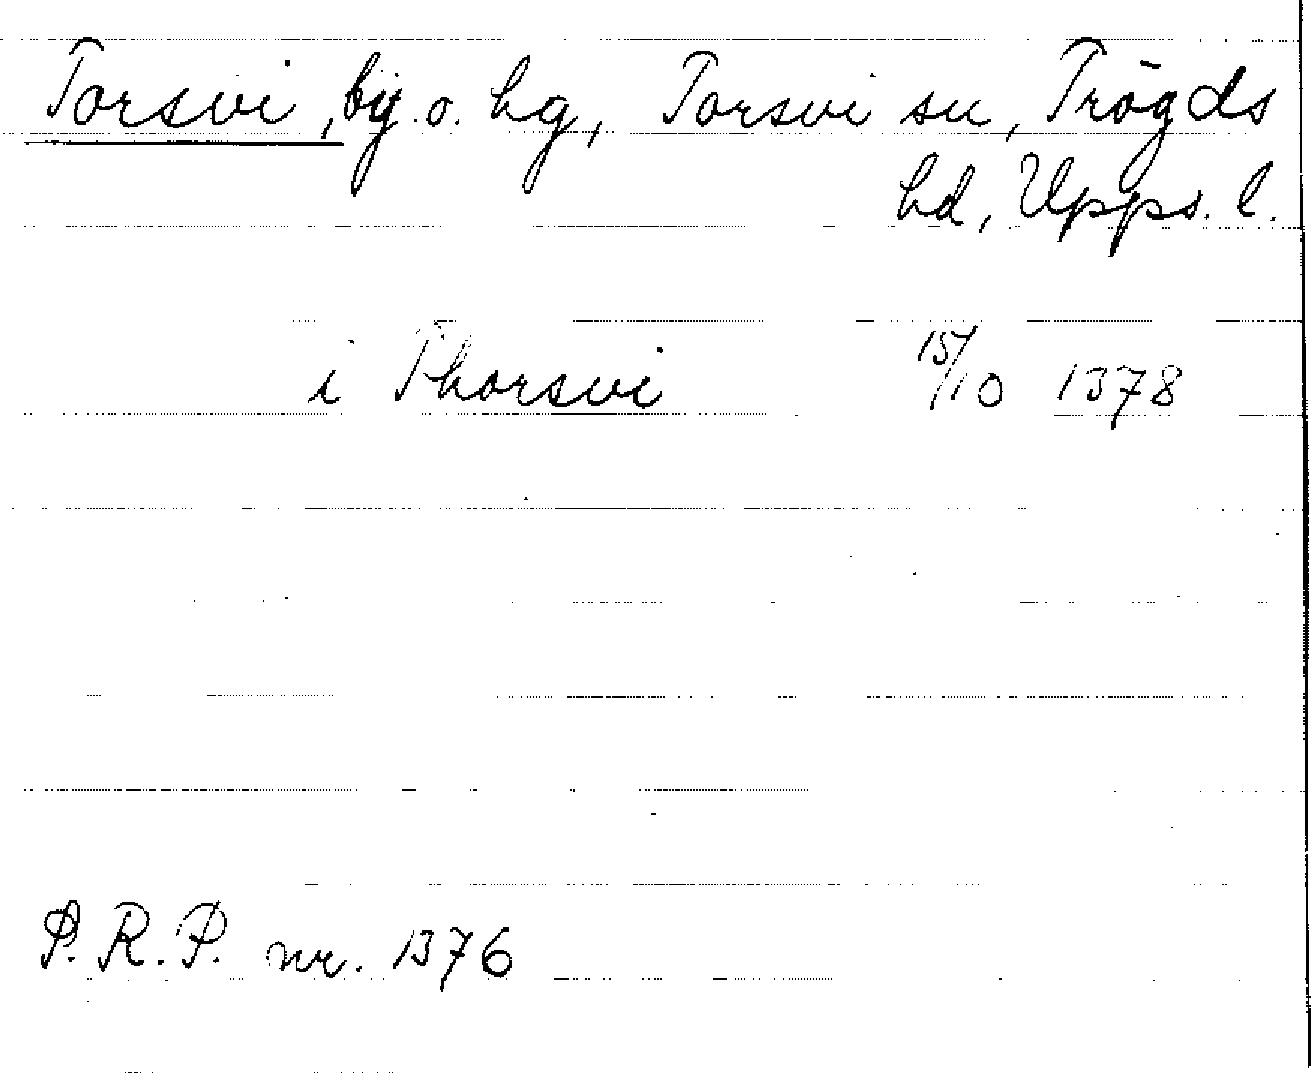 Torsvi, by. o. hg, Torsvi sn, Trögds
hd, Upps. l.
i Thorsvi 15/10 1378
P.R.P. nr. 1376